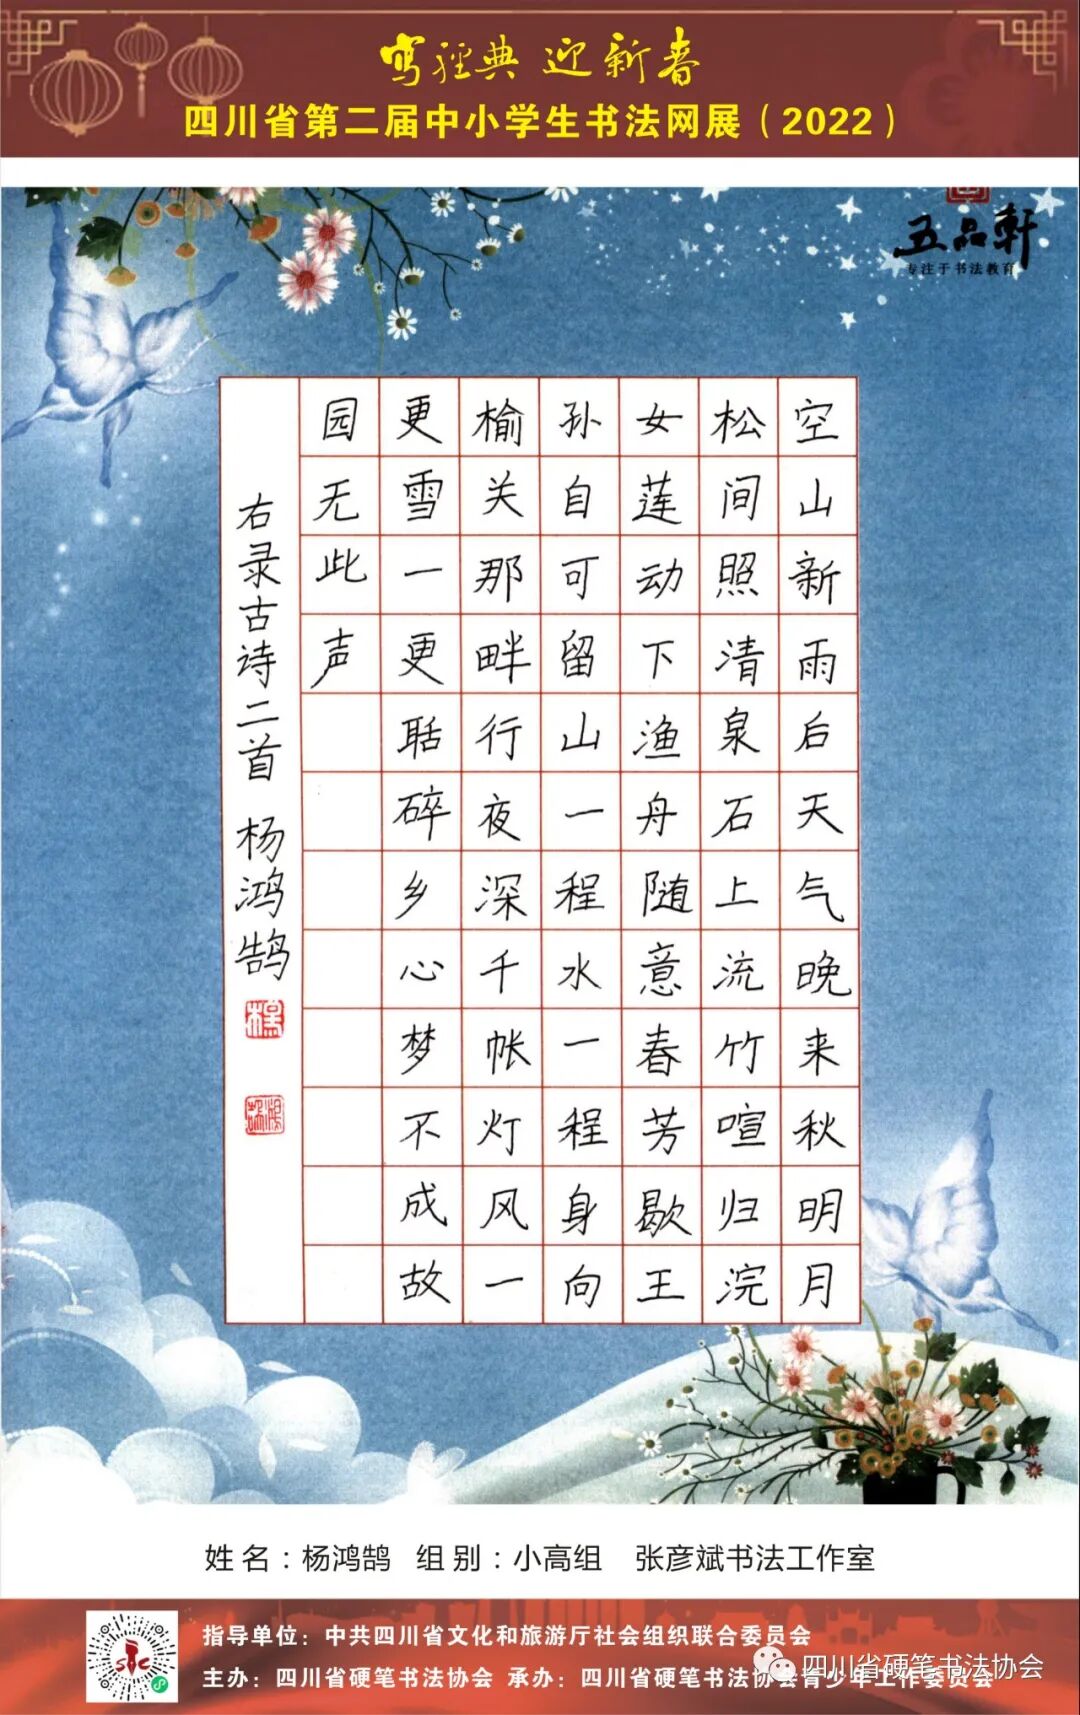 写经典 迎新春
四川省第二届中小学生书法网展（2022）
五品軒
专注于书法教育
空山新雨后天气晚来秋明月
松间照清泉石上流竹喧归浣
女莲动下渔舟随意春芳歇王
孙自可留山一程水一程身向
榆关那畔行夜深千帐灯风一
更雪一更聒碎乡心梦不成故
园无此声
右录古诗二首 杨鸿鹄
姓名：杨鸿鹄 组别：小高组 张彦斌书法工作室
指导单位：中共四川省文化和旅游厅社会组织联合委员会
主办：四川省硬笔书法协会 承办：四川省硬笔书法协会青少年工作委员会
四川省硬笔书法协会